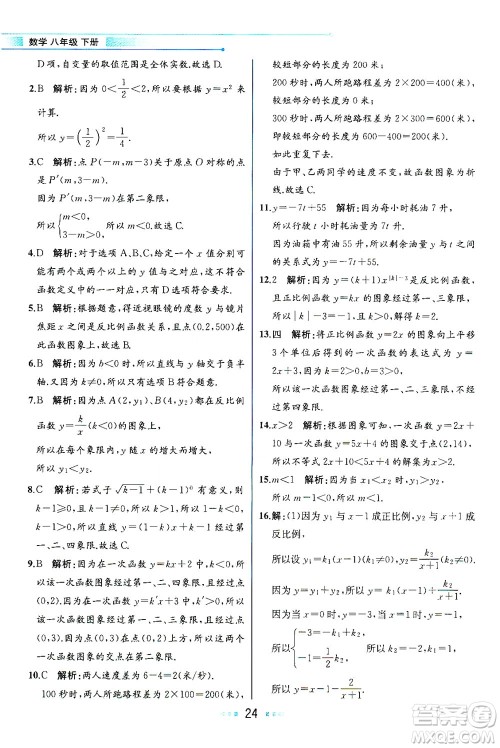 数学 八年级 下册
D 项,自变量的取值范围是全体实数.
故选 C.
2.B 解析:因为 0<1/2<2,所以 y=x².
所以 y=(1/2)²=1/4.
3.C 解析:点 P(-m,m-3)关于原点 O 对称的点是
P′(m,3-m).
因为 P′(m,3-m)在第二象限,
所以{m<0, 3-m>0.故选 C.
4.D 解析:对于选项 A,B,C,给定一个 x 值分别有
唯一一个 y 值与之对应,选项 D 不具备,这不符合
函数定义.
5.B 解析:根据题意,得近视眼镜的度数与镜片
焦距 x 成反比例函数关系,且点(0.2,500)在此
函数图象上.
6.B 解析:因为 b<0,所以直线与 y 轴交于负半
轴.又因为 k≠0,所以选 B.
7.B 解析:因为点 A(2,y₁),B(4,y₂)都在反比例
函数 y=k/x(k<0)的图象上,
所以每个象限内,y 随 x 的增大而增大.
所以 y₁<y₂.
8.C 解析:若式子√k-1+(k-1)⁰ 有意义,则
k-1≥0,且 k-1≠0.
所以 k>1.
所以 k-1>0,1-k<0.
9.B 解析:因为在一次函数 y=kx+2 中,k>0,
所以该一次函数图象经过第一、二、三象限,经过点
(0,2).因为在一次函数 y=k′x+5 中,k′<0,
所以该一次函数图象经过第一、二、四象限,经过点
(0,5).所以两个一次函数图象的交点在第一或第
二象限.
10.C 解析:两人速度差是 6-4=2(米/秒).
100 秒时,两人所跑路程差为 2×100=200(米),
较短部分的长度为 200 米;
200 秒时,两人所跑路程差为 2×200=400(米),
较短部分的长度为 0 米;
300 秒时,两人所跑路程差为 2×300=600(米),
即较短部分的长度为 600-400=200(米).
如此重复下去.
由于甲、乙两同学的速度不变,故函数图象为折
线.故选 C.
11.y=-7t+55 解析:因为每小时耗油 7 升,
所以行驶 t 小时耗油 7t 升.
因为油箱中有油 55 升,所以剩余油量与时间
的关系是 y=-7t+55.
12.2 解析:因为 y=(k+1)x^|k|-3是反比例函数,
所以|k|-3=-1,且 k+1≠0.
因为函数图象经过第一、三象限,
所以 k+1>0,所以 k=2.
13.四 解析:将正比例函数 y=2x 的图象向上平移
3 个单位后得到的一次函数为 y=2x+3,
因为 k=2>0,b=3>0,
所以函数图象经过第一、二、三象限,不经过第
四象限.
14.x>2 解析:因为一次函数 y=2x+
10 与一次函数 y=5x+4 的图象交于点(2,14),
所以 y=2x+10<y=5x+4 的解集为 x>2.
15.m<1 解析:因为当 x₁<x₂ 时,y₁>y₂,
所以 m-1<0,所以 m<1.
16.解:(1)因为 y₁ 与 x-1 成正比例,y₂ 与 x+1 成
反比例,
所以设 y₁=k₁(x-1),y₂=k₂/x+1.
因为 y=y₁+y₂,所以 y=k₁(x-1)+k₂/x+1.
因为当 x=0 时,y=-3;当 x=1 时,y=-1,
所以{-3=-k₁+k₂, -1=1/2 k₂.
24